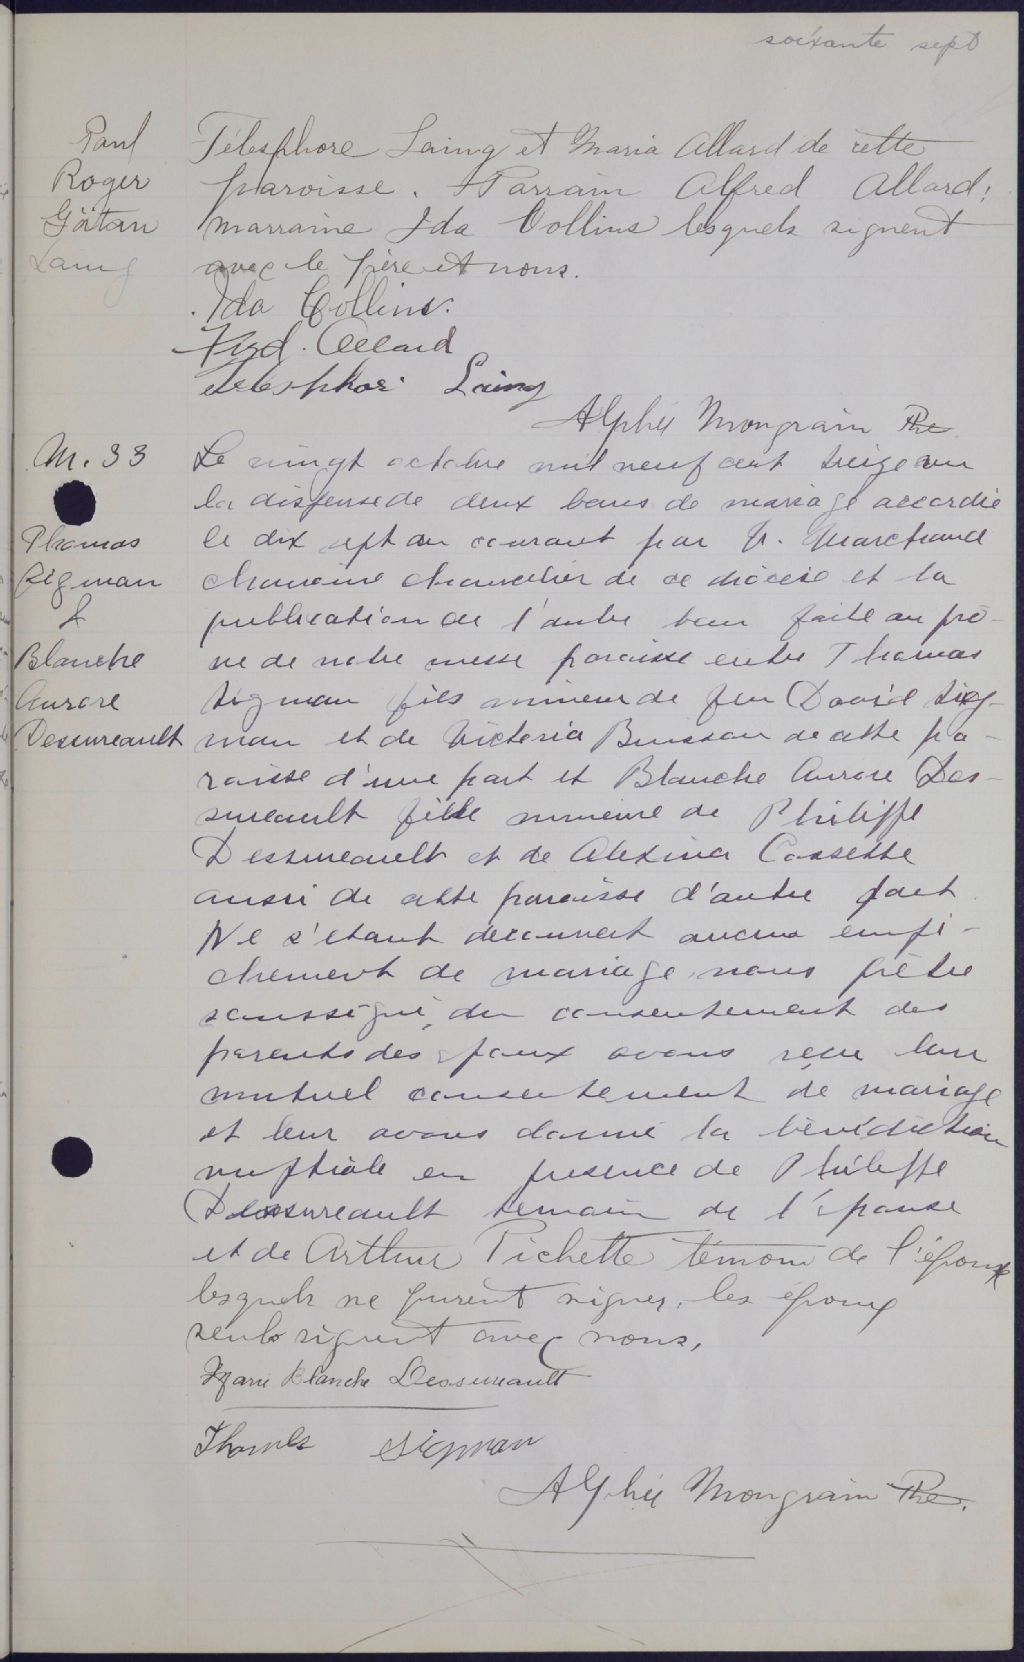 soixante sept
Paul
Roger
Gätan
Laing
Télesphore Laing et Maria Allard de cette
paroisse. Parrain Alfred Allard;
marraine Ida Collins lesquels signent
avec le père et nous.
Ida Collins.
Fred. Allard
Telesphor Laing
Alphée Mongrain Ptre
M. 33
Thomas
Sigman
&
Blanche
Aurore
Dessureault
Le vingt octobre mil neuf cent treize vu
la dispense de deux bans de mariage accordée
le dix sept du courant par U. Marchand
chanoine chancelier de ce diocèse et la
publication de l'autre ban faite au prô-
ne de notre messe paroisse entre Thomas
Sigman fils mineur de feu David Sig-
man et de Victoria Buisson de cette pa-
roisse d'une part et Blanche Aurore Des-
sureault fille mineure de Philippe
Dessureault et de Alexina Cossette
aussi de cette paroisse d'autre part
Ne s'étant découvert aucun empê-
chement de mariage nous prêtre
soussigné, du consentement des
parents des époux avons reçu leur
mutuel consentement de mariage
et leur avons donné la bénédiction
nuptiale en présence de Philippe
Dessureault témoin de l'épouse
et de Arthur Pichette témoin de l'époux
lesquels ne purent signer, les époux
seuls signent avec nous,
Marie Blanche Dessureault
Thomas Sigman
Alphée Mongrain Ptre.